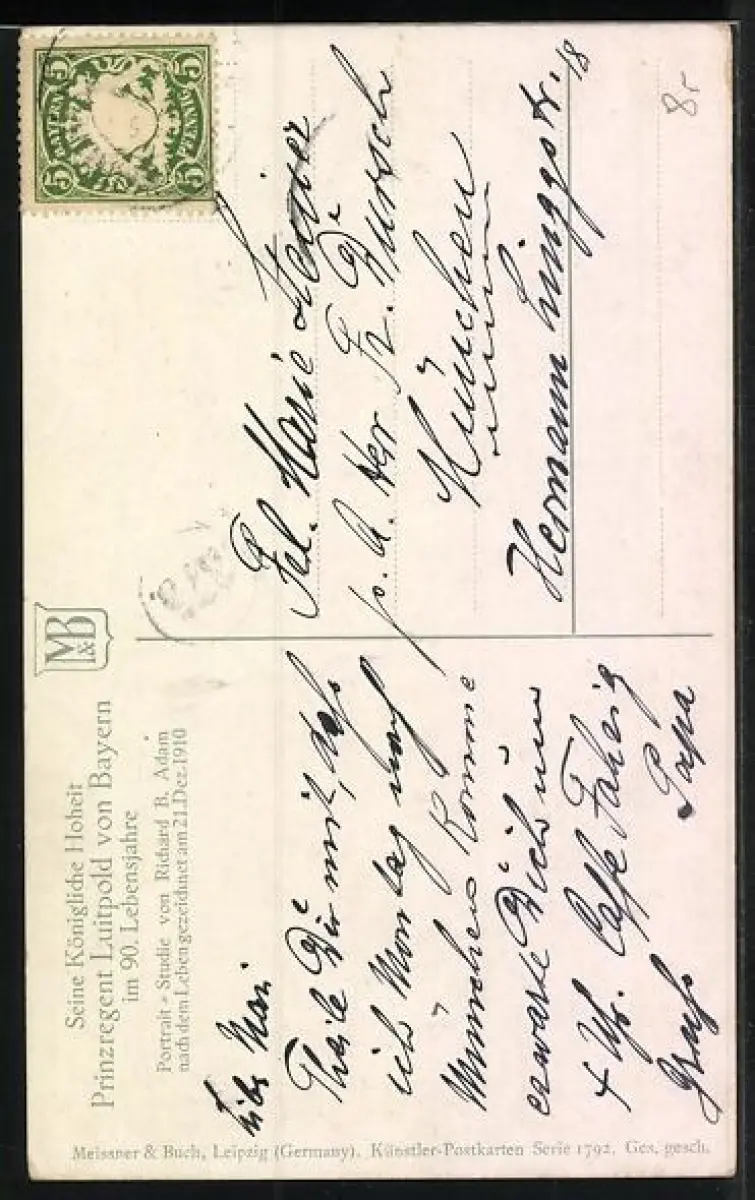 Seine Königliche Hoheit
Prinzregent Luitpold von Bayern
im 90. Lebensjahre
Portrait-Studie von Richard B. Adam
nach dem Leben gezeichnet am 21. Dez. 1910
M&B
Liebe Mari
Theile Dir mit, dass
ich Montag nach
München komme
erwarte Dich um
4 Uhr. Caffe
Gruss Papa
Meissner & Buch, Leipzig (Germany). Künstler-Postkarten Serie 1792. Ges. gesch.
BAYERN
5 5
5 5
Frl. Marie
p. A. Herr Fr. Dursch
München
Hermann Linggstr. 18
8,-